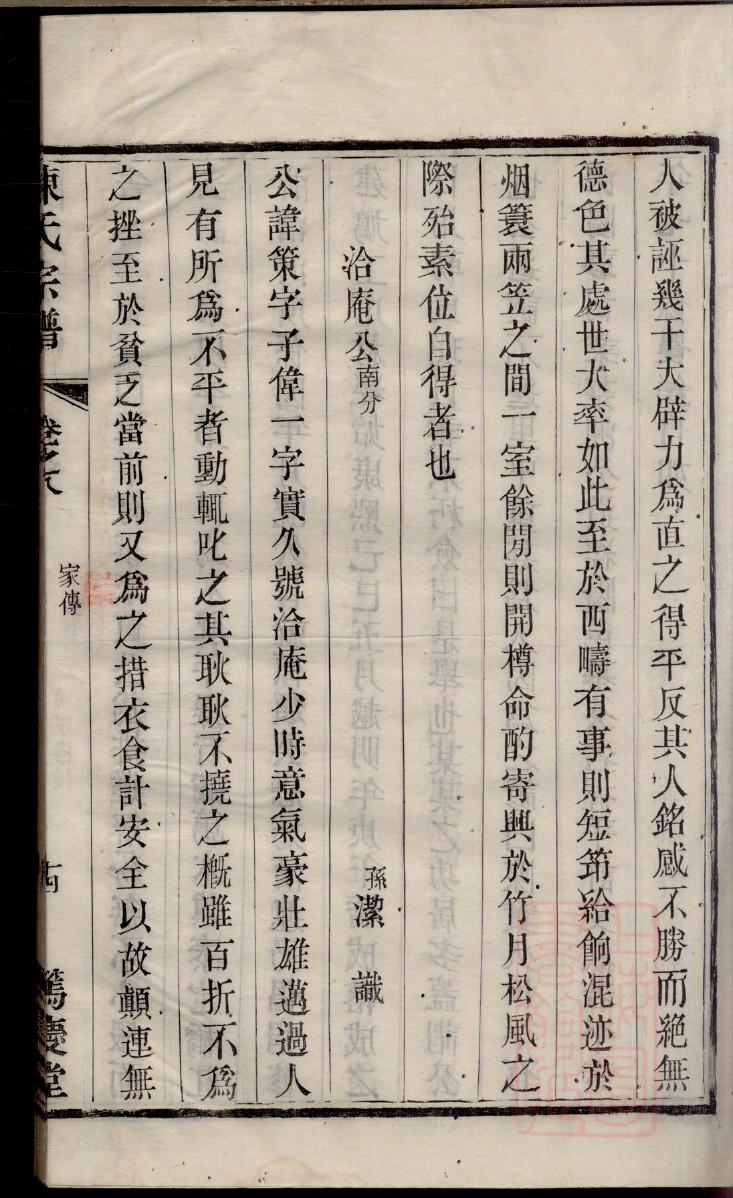 人被誣幾干大辟力爲直之得平反其人銘感不勝而絕無
德色其處世大率如此至於西疇有事則短笻給餉混迹於
烟簑雨笠之間一室餘閒則開樽命酌寄興於竹月松風之
際殆素位自得者也
洽庵公南分
孫潔識
公諱策字子偉一字實久號洽庵少時意氣豪壯雄邁過人
見有所爲不平者動輒叱之其耿耿不撓之槪雖百折不爲
之挫至於貧乏當前則又爲之措衣食計安全以故顛連無
陳氏宗譜
家傳
篤慶堂